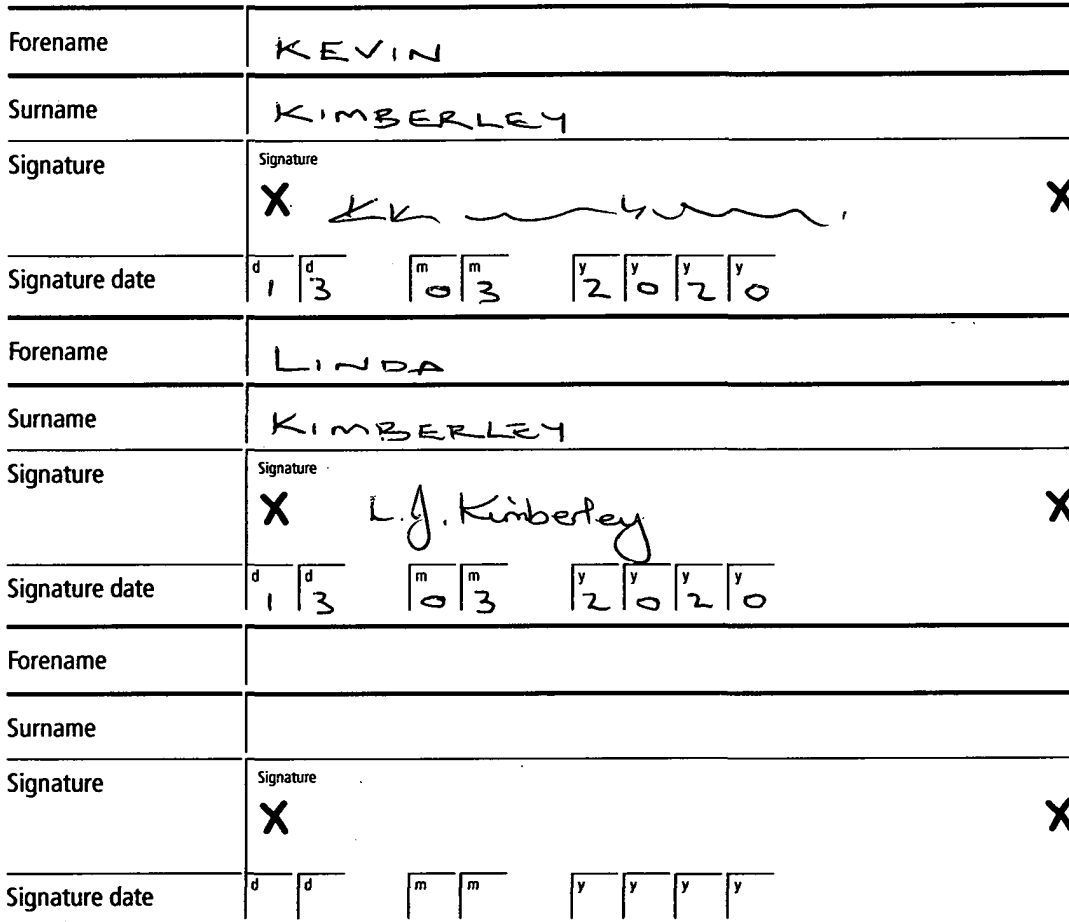 Forename KEVIN
Surname KIMBERLEY
Signature Signature
X X
Signature date d 1 d 3 m 0 m 3 y 2 y 0 y 2 y 0
Forename LINDA
Surname KIMBERLEY
Signature Signature
X L.J. Kimberley X
Signature date d 1 d 3 m 0 m 3 y 2 y 0 y 2 y 0
Forename
Surname
Signature Signature
X X
Signature date d d m m y y y y